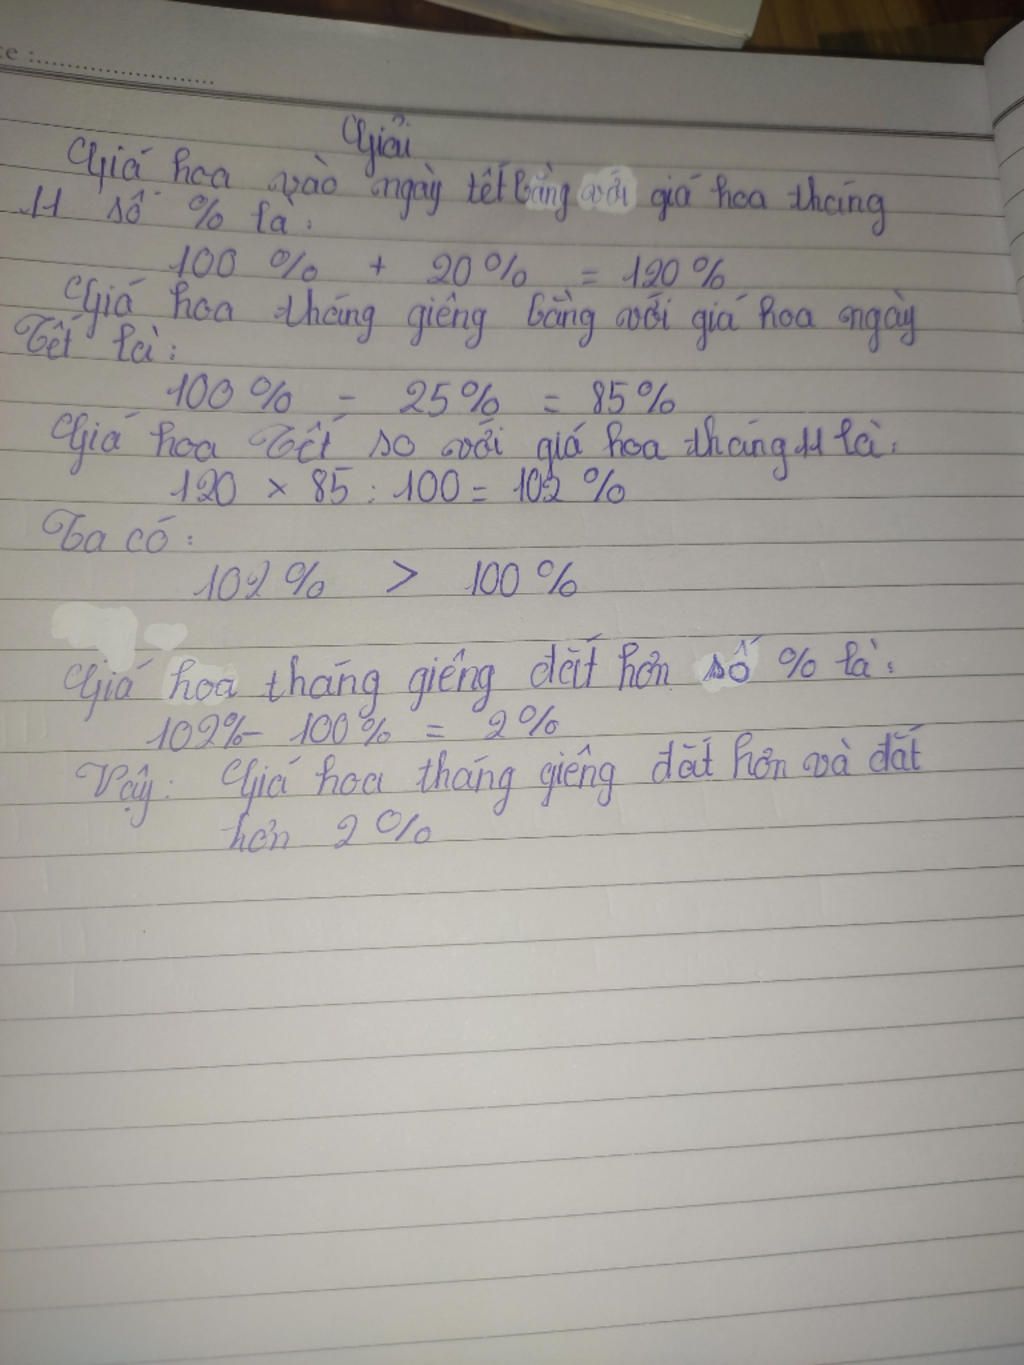 ce :........................
Giải
Giá hoa vào ngày tết bằng với giá hoa tháng
11 số % là:
100 % + 20 % = 120 %
Giá hoa tháng giêng bằng với giá hoa ngày
Tết là:
100 % - 25 % = 85 %
Giá hoa Tết so với giá hoa tháng 11 là:
120 × 85 : 100 = 102 %
Ta có:
102 % > 100 %
Giá hoa tháng giêng đắt hơn số % là:
102% - 100 % = 2 %
Vậy: Giá hoa tháng giêng đắt hơn và đắt
hơn 2 %